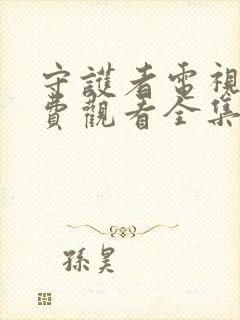 守護者電視
費觀看全集
孫昊